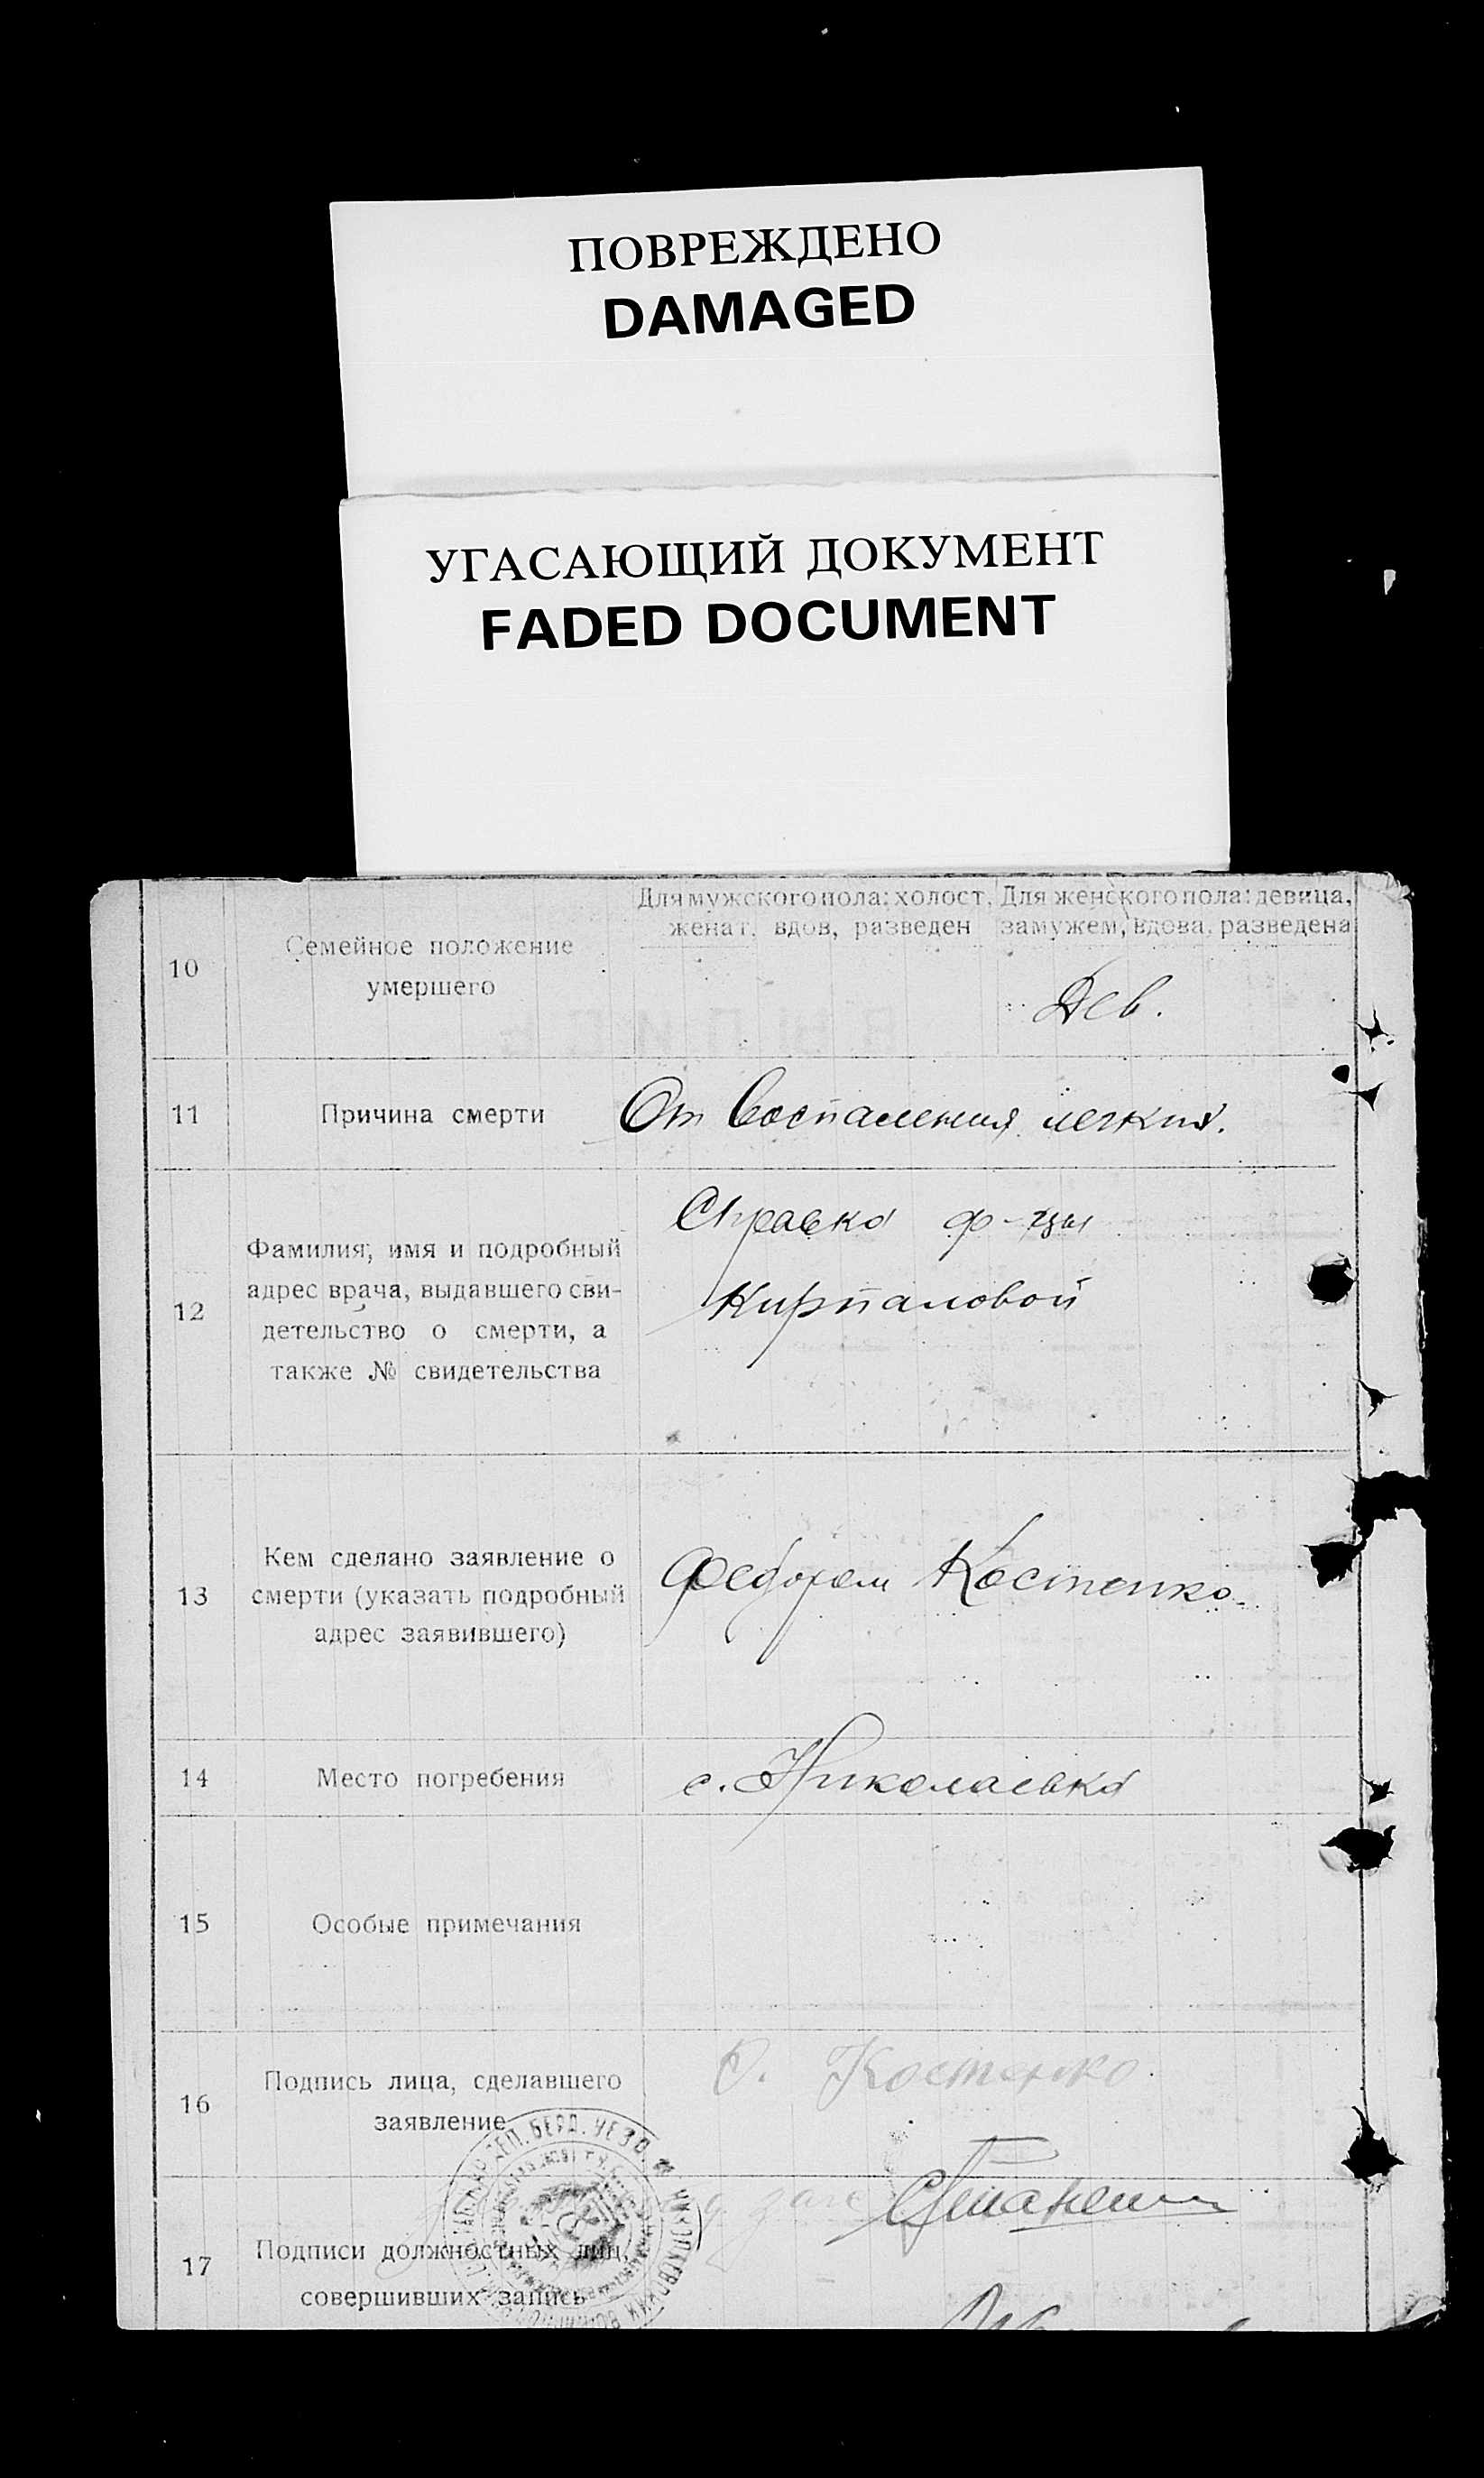 ПОВРЕЖДЕНО
DAMAGED
УГАСАЮЩИЙ ДОКУМЕНТ
FADED DOCUMENT
Для мужского пола: холост, Для женского пола: девица,
женат, вдов, разведен замужем, вдова, разведена
10 Семейное положение
умершего
Дев.
11 Причина смерти От воспаления легких.
Справка ф-цы
Кирпаловой
12 Фамилия, имя и подробный
адрес врача, выдавшего сви-
детельство о смерти, а
также № свидетельства
13 Кем сделано заявление о
смерти (указать подробный
адрес заявившего)
Федором Костенко
14 Место погребения с. Николаевка
15 Особые примечания
Костенко
16 Подпись лица, сделавшего
заявление
17 Подписи должностных лиц,
совершивших запись